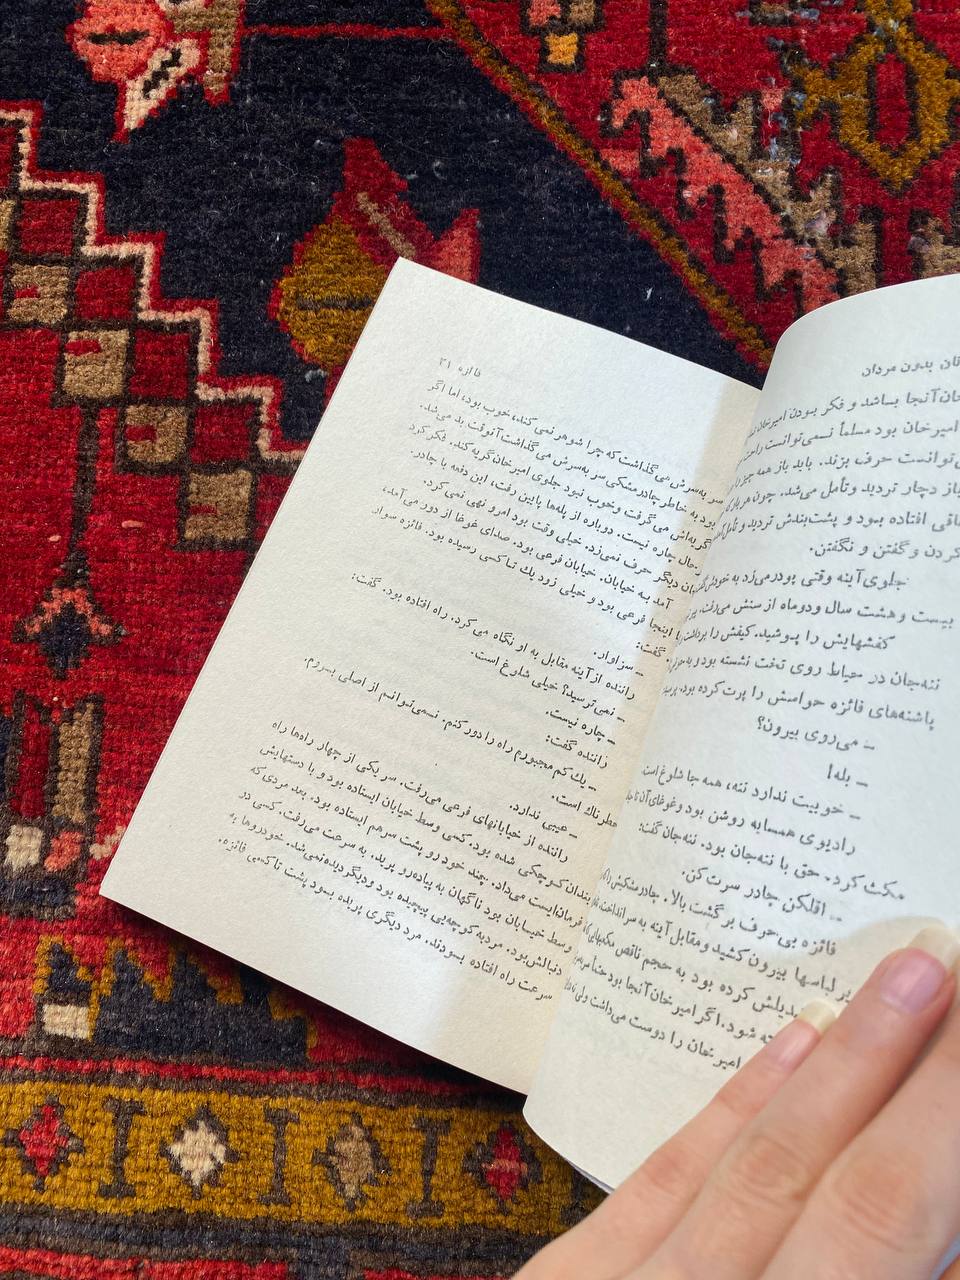 زنان بدون مردان
آنجا بباشد و فکر بودن امیرخان
امیرخان بود مسلماً نسمی‌توانست راحت
توانست حرف بزند. باید باز همه چیز را
باز دچار تردید و تأمل می‌شد. چون هر بار که
افتاده بود و پشت‌بندش تردید و تأمل
کردن و گفتن و نگفتن.
جلوی آینه وقتی پودر می‌زد به خودش
بیست و هشت سال و دو ماه از سنش می‌رفت.
کفشهایش را پوشید. کیفش را برداشت
ننه‌جان در حیاط روی تخت نشسته بود و
پاشنه‌های فائزه حواسش را پرت کرده بود.
– می‌روی بیرون؟
– بله!
– خوبیت ندارد ننه، همه جا شلوغ است
رادیوی همسایه روشن بود و غوغای آن تا
مکث کرد. حق با ننه‌جان بود. ننه‌جان گفت:
– اقلکن چادر سرت کن.
فائزه بی‌حرف برگشت بالا. چادر مشکیش را
لباسها بیرون کشید و مقابل آینه به سر انداخت.
تبدیلش کرده بود به حجم ناقص
شود. اگر امیرخان آنجا بود حتماً
امیرخان را دوست می‌داشت ولی
فائزه ۳۱
سر به‌سرش می‌گذاشت که چرا شوهر نمی‌کند، خوب بود، اما اگر
بود به خاطر چادر مشکی سر به‌سرش می‌گذاشت آنوقت بد می‌شد.
گریه‌اش می‌گرفت و خوب نبود جلوی امیرخان گریه کند. فکر کرد
حال چاره نیست. دوباره از پله‌ها پایین رفت، این دفعه با چادر.
دیگر حرف نمی‌زد. خیلی وقت بود امر و نهی نمی‌کرد.
آمد به خیابان. خیابان فرعی بود. صدای غوغا از دور می‌آمد،
اینجا فرعی بود و خیلی زود یك تاکسی رسیده بود. فائزه سوار
گفت:
– سزاوار.
راننده از آینه مقابل به او نگاه می‌کرد. راه افتاده بود. گفت:
– نمی‌ترسید؟ خیلی شلوغ است.
– چاره نیست.
راننده گفت:
– یك کم مجبورم راه را دور کنم. نسمی‌توانم از اصلی بسروم.
خطرناك است.
– عیبی ندارد.
راننده از خیابانهای فرعی می‌رفت. سر یکی از چهار راه‌ها راه
بندان کوچکی شده بود. کسی وسط خیابان ایستاده بود و با دستهایش
فرمان ایست می‌داد. چند خودرو پشت سرهم ایستاده بود. بعد مردی که
وسط خیابان بود ناگهان به پیاده‌رو پرید. به سرعت می‌رفت. کسی در
دنبالش بود. مرد به کوچه‌یی پیچیده بود و دیگر دیده نمی‌شد. خودروها به
سرعت راه افتاده بسودند. مرد دیگری پریده بسود پشت تاکسی فائزه.